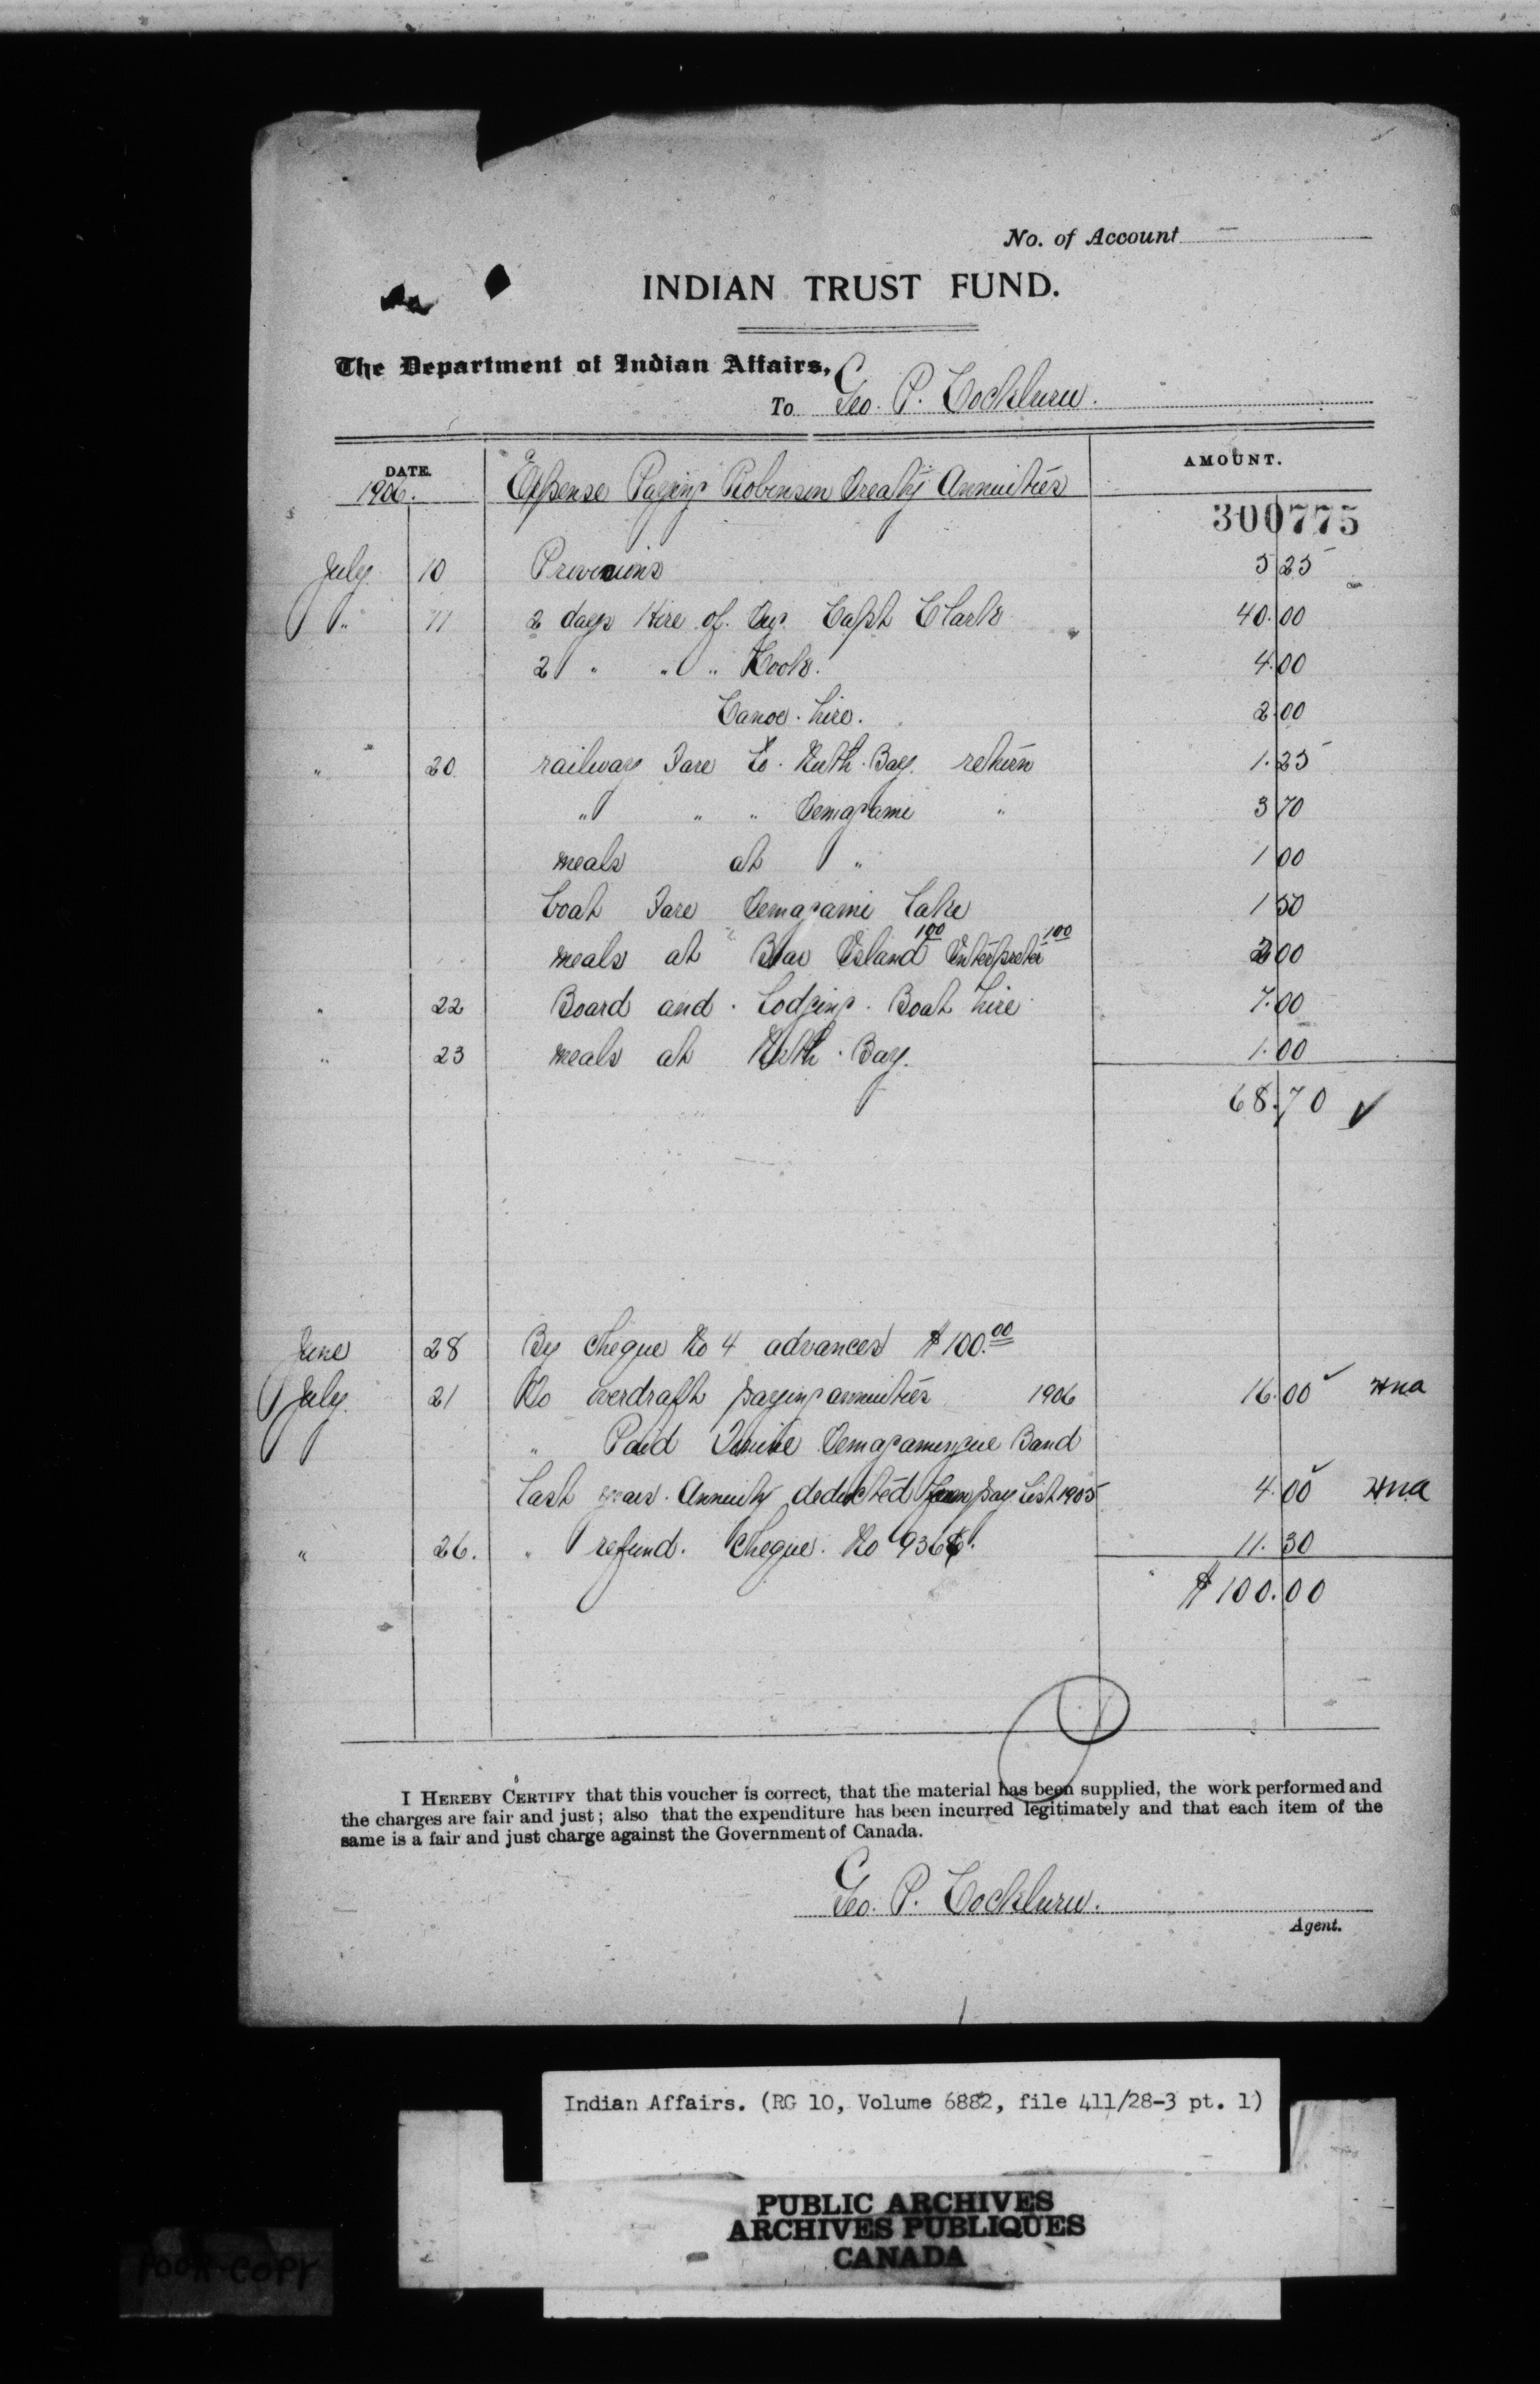 No. of Account
INDIAN TRUST FUND.
The Department of Indian Affairs,
To Geo. P. Cockburn.
DATE. AMOUNT.
1906. Expense Paying Robinson Treaty Annuities
300775
July 10 Provisions 5 25
" 11 2 days Hire of Tug Capt Clark 40.00
2 " " " Cook. 4.00
Canoe hire. 2.00
" 20 railway Fare to Nrth. Bay. return 1.25
" " " Temagami " 3 70
meals at " 1 00
boat Fare Temagami Lake 1 50
meals at Bear Island 1 00 Interpreter 1 00 2 00
" 22 Board and Lodging. Boat hire 7.00
" 23 meals at Nrth. Bay. 1.00
68.70 ✓
June 28 By cheque No 4 advances $100.00
July 21 To overdraft paying annuities 1906 16.00 ✓
" Paid Temagamingue Band
last years Annuity deducted from pay List 1905 4.00 ✓
" 26. " refund. Cheque. No 11.30
$100.00
I HEREBY CERTIFY that this voucher is correct, that the material has been supplied, the work performed and
the charges are fair and just; also that the expenditure has been incurred legitimately and that each item of the
same is a fair and just charge against the Government of Canada.
Geo. P. Cockburn.
Agent.
Indian Affairs. (RG 10, Volume 6882, file 411/28-3 pt. 1)
PUBLIC ARCHIVES
ARCHIVES PUBLIQUES
CANADA
POOR COPY